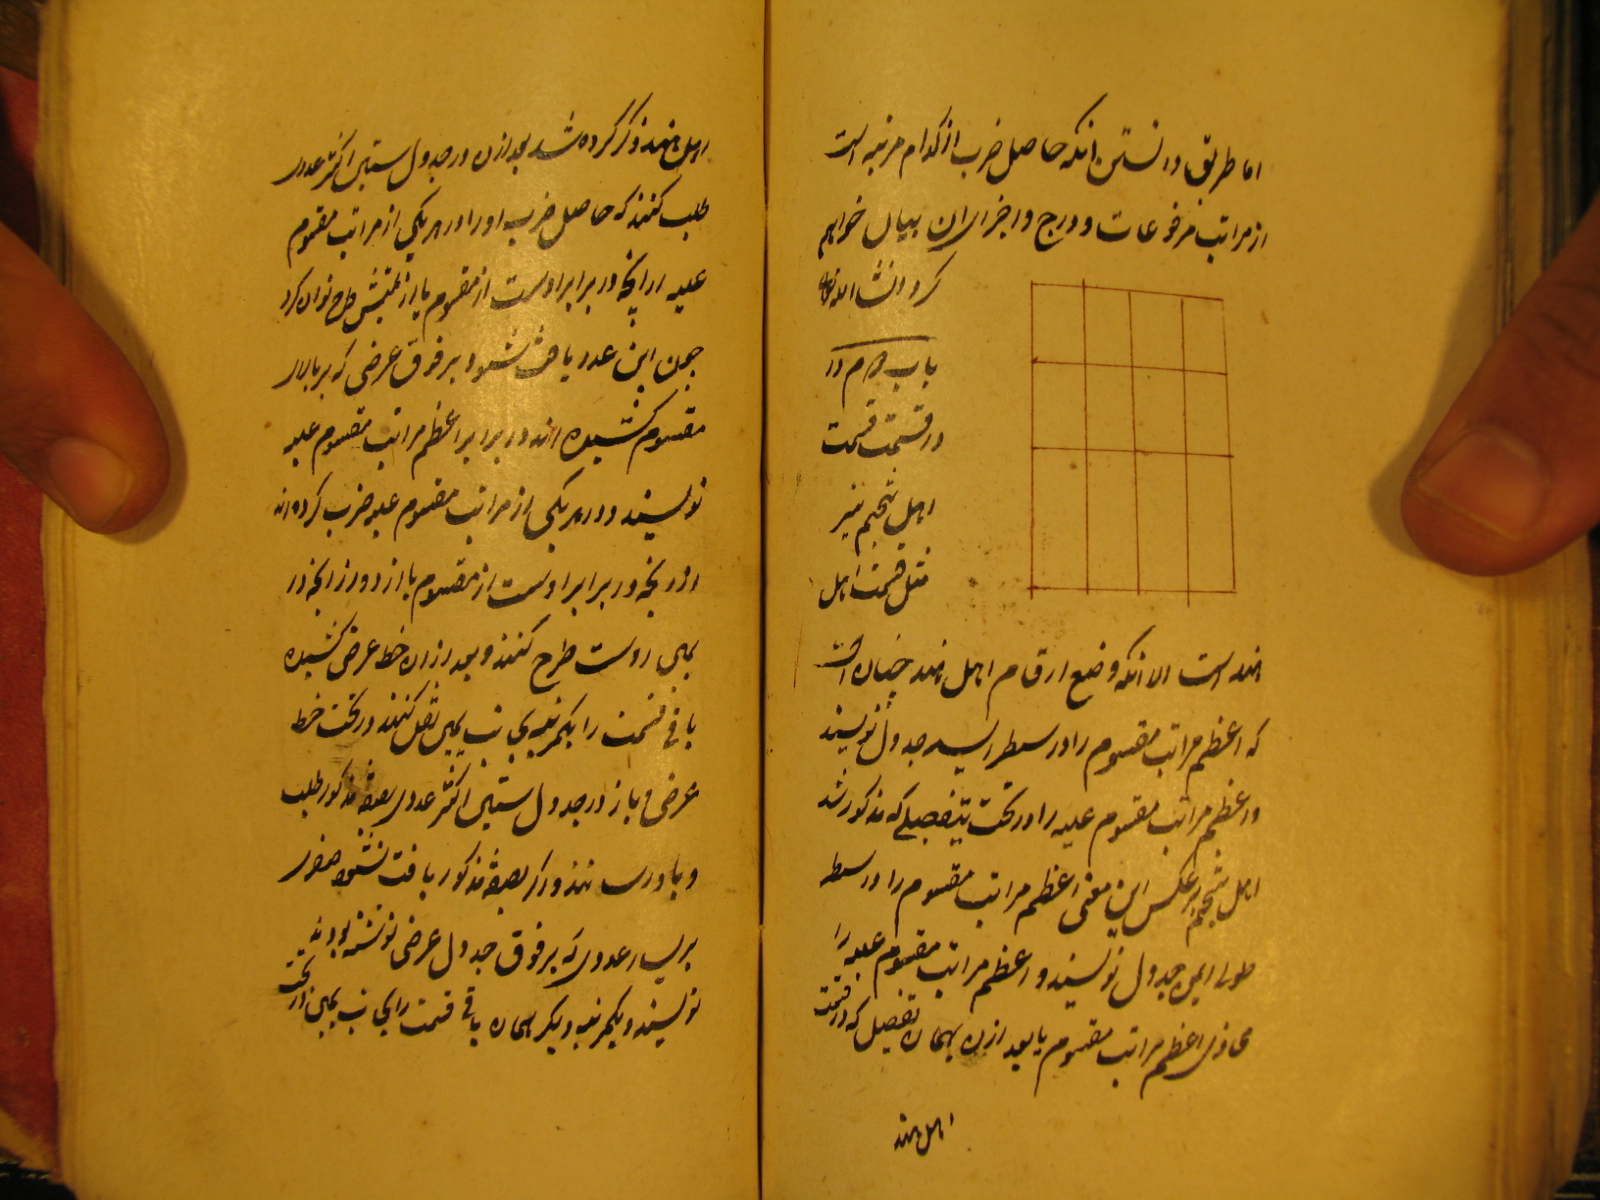 اما طریق دانستن آنکه حاصل ضرب از کدام مرتبه است
از مراتب مرفوعات و درج و اجزای آن بیان خواهیم
کرد انشاء الله تعالی
باب در
در قسمت قسمت
اهل تنجیم نیز
مثل قسمت اهل
هند است الا آنکه وضع ارقام اهل هند چنان است
که اعظم مراتب مقسوم را در سطر ایسر جدول نویسند
و اعظم مراتب مقسوم علیه را در تحت بتفصیلی که مذکور شد
اهل تنجیم بر عکس این معنی اعظم مراتب مقسوم را در سطر
طولی ایمن جدول نویسند و اعظم مراتب مقسوم علیه را
محاذی اعظم مراتب مقسوم یا بعد از آن بهمان تفصیل که در قسمت
اهل هند
اهل هند ذکر کرده شد بعد از آن در جدول ستینی اکثر عددی
طلب کنند که حاصل ضرب او را در هر یکی از مراتب مقسوم
علیه از آنچه در برابر اوست از مقسوم یا از نقصان کرد
چون این عدد یافت شود بر فوق عرضی که بر بالای
مقسوم کشیده اند در برابر اعظم مراتب مقسوم علیه
نویسند و در هر یکی از مراتب مقسوم علیه ضرب کرده اند
از آنچه در برابر اوست از مقسوم یا از و از آنچه در
یمین اوست طرح کنند و بعد از آن خط عرضی کشیده
باقی قسمت را بکمرتبه بجانب یمین نقل کنند در تحت خط
عرضی و باز در جدول ستینی اکثر عددی بصفة مذکور طلب
و با و در اگر بصفة مذکور یافت نشود صفری
بر یسار عددی که بر فوق جدول عرضی نوشته بودند
نویسند و یکمرتبه دیگر همان باقی قسمت را بجانب یمین در تحت